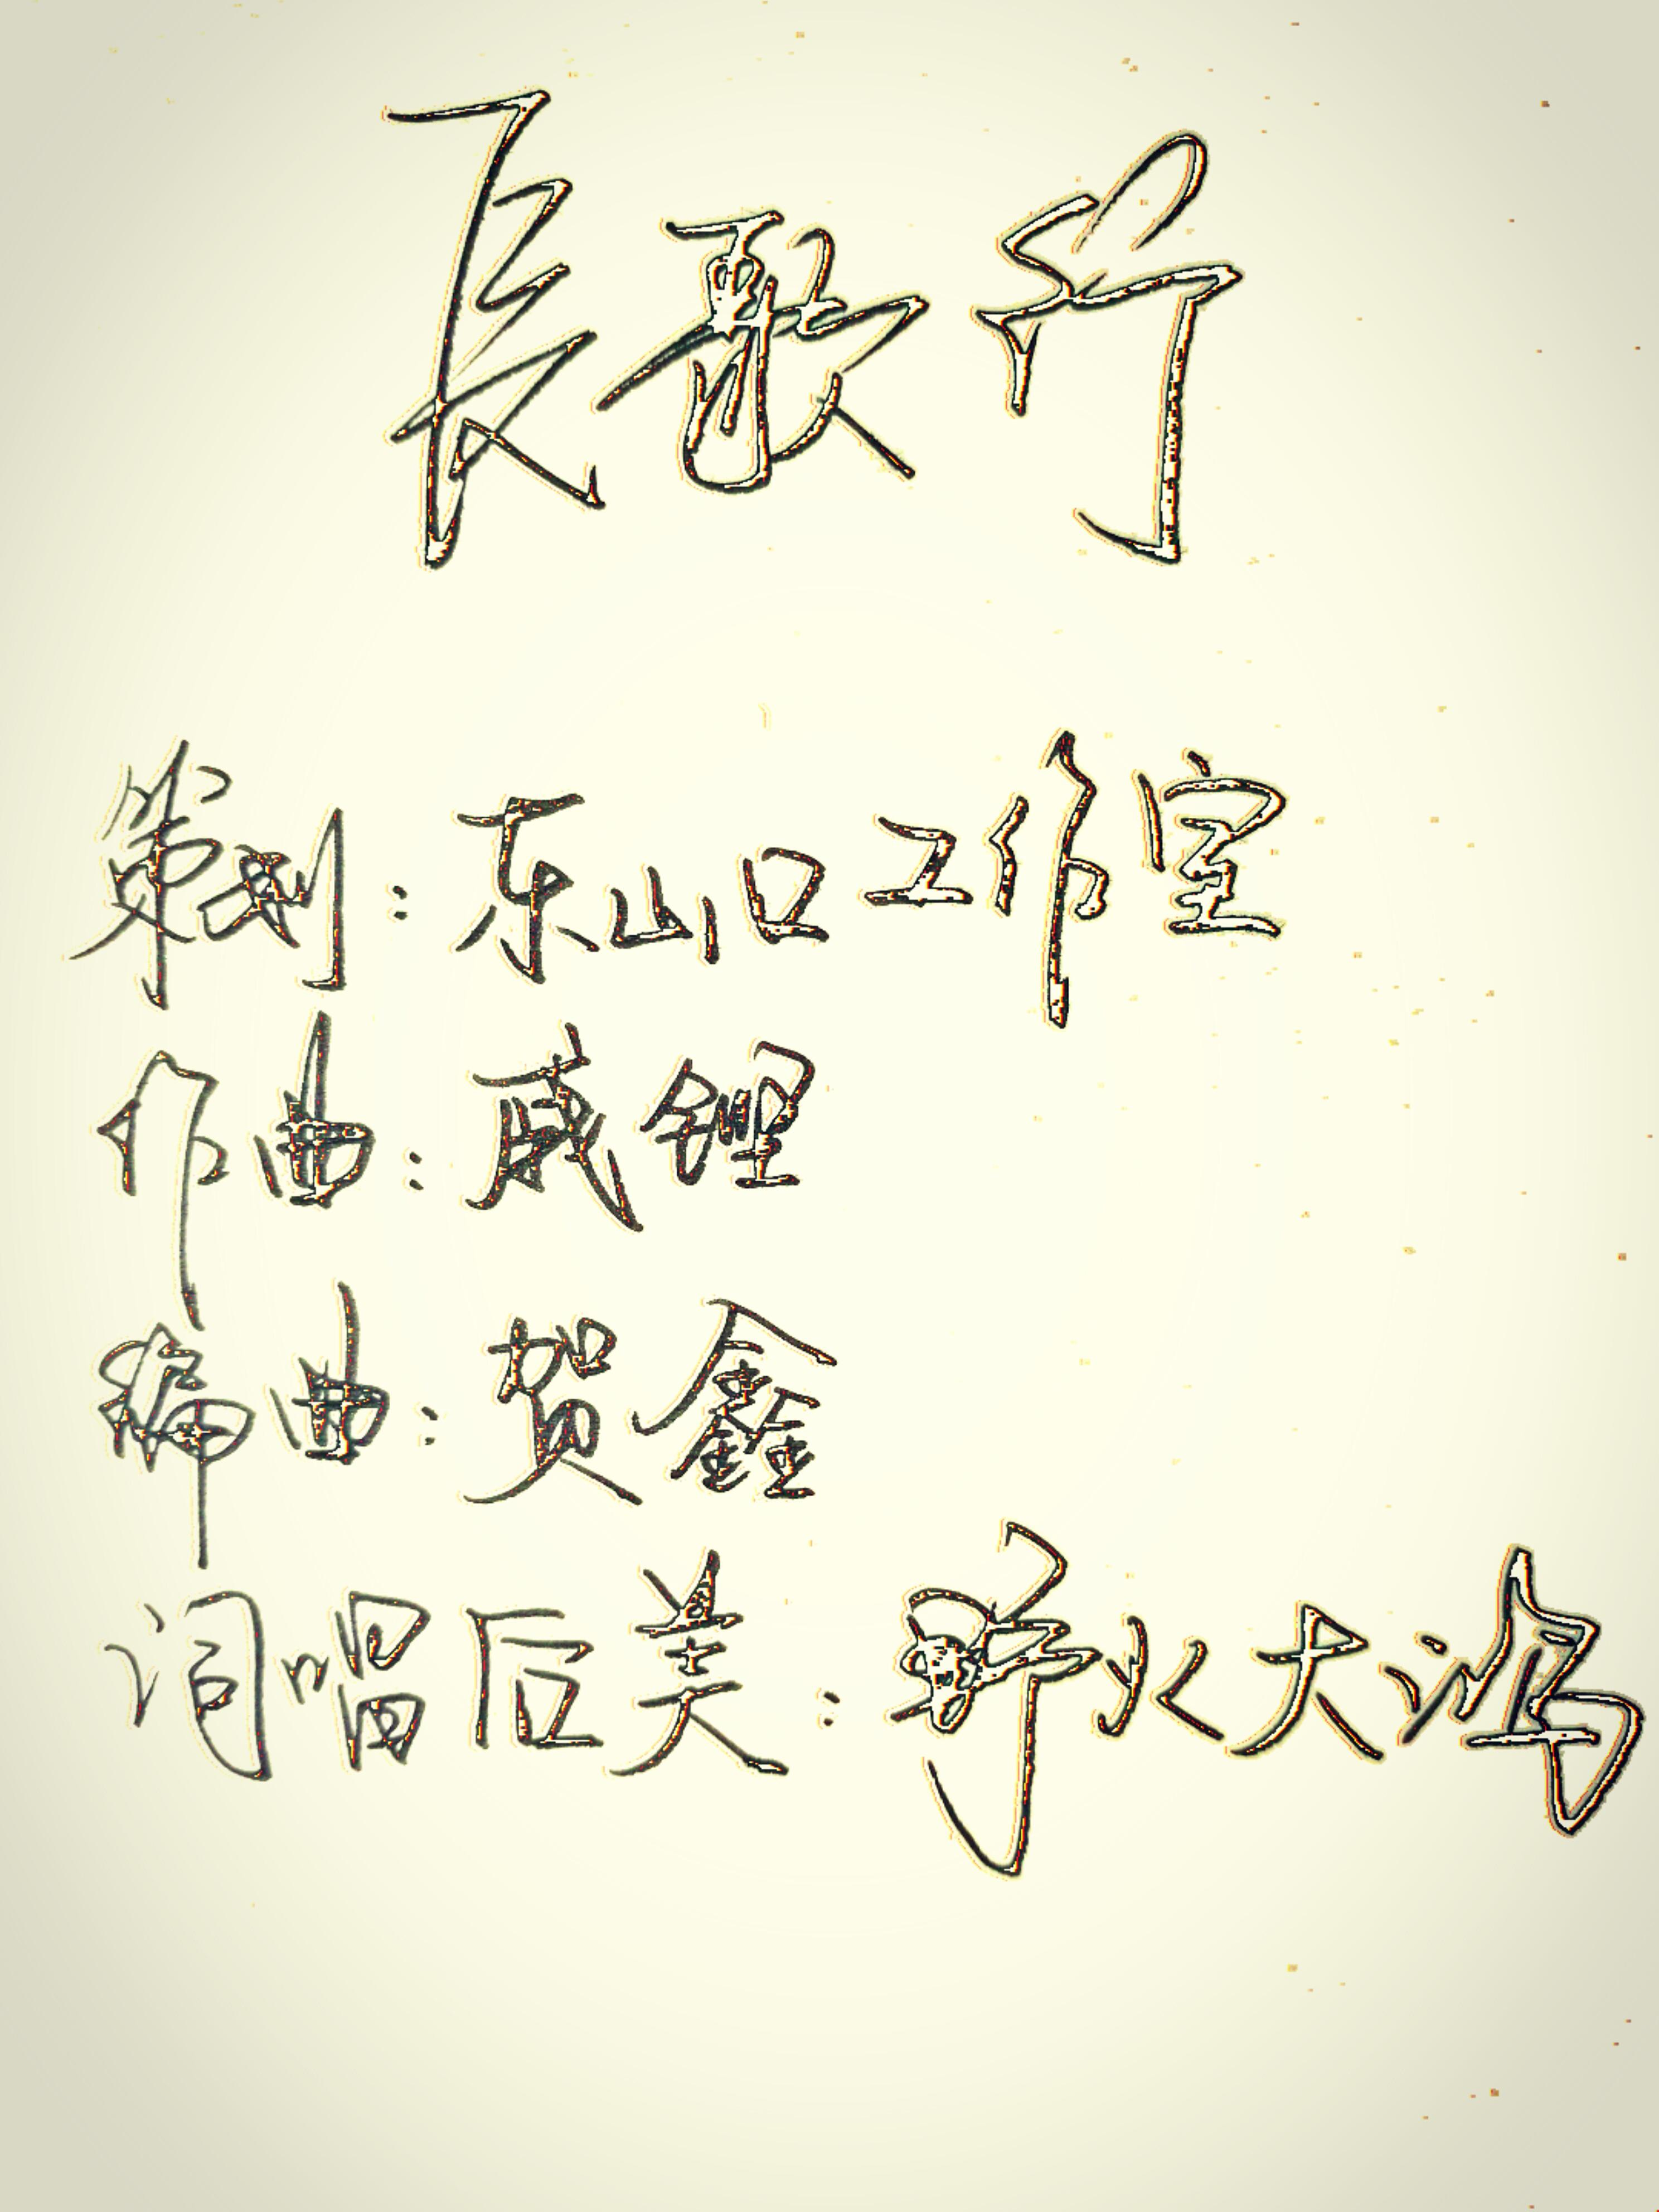 長歌行
策划：东山口工作室
作曲：戚锂
编曲：贺鑫
词唱后美：野火大鸿